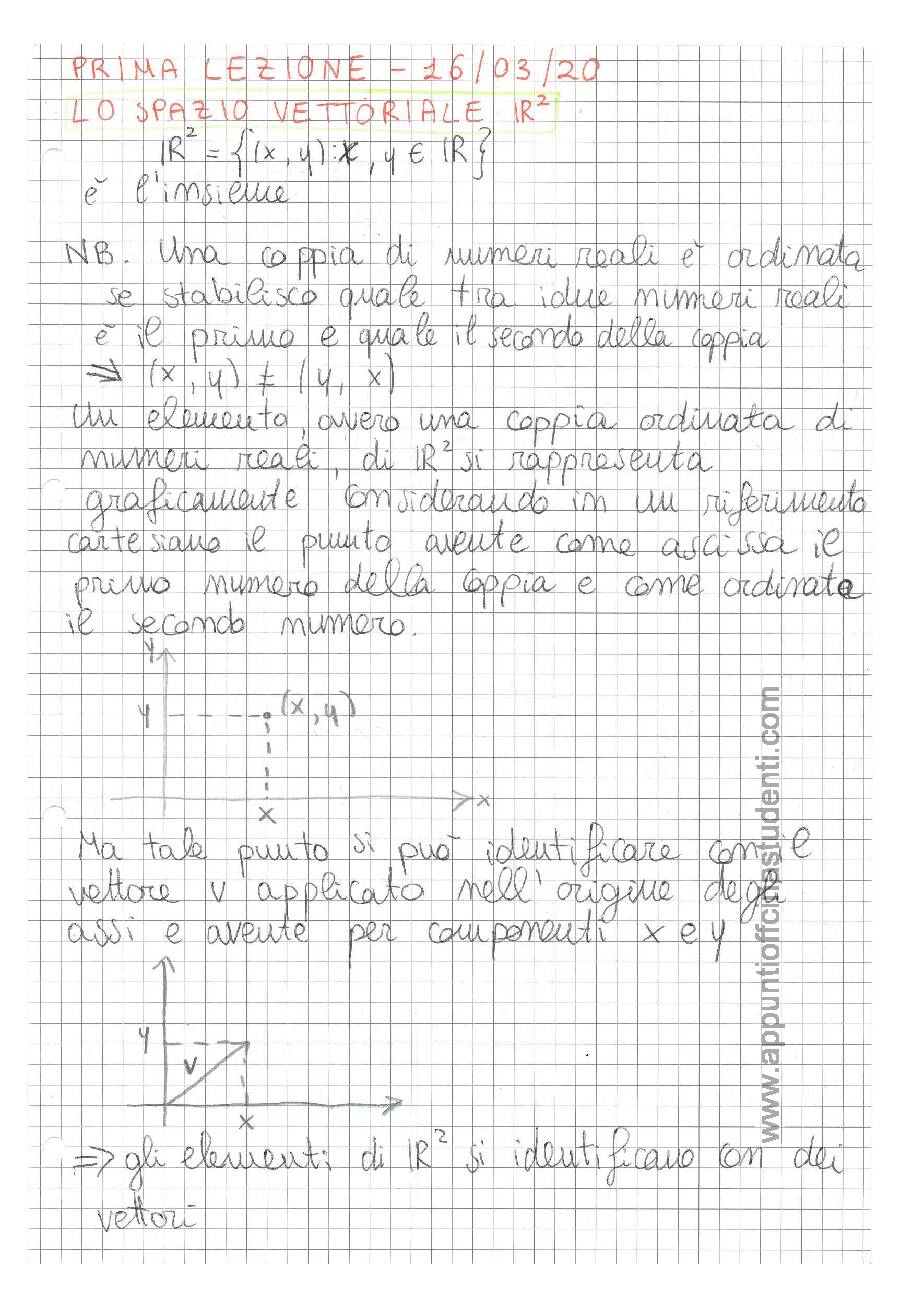 PRIMA LEZIONE - 16/03/20
LO SPAZIO VETTORIALE ℝ²
ℝ² = {(x, y): x, y ∈ ℝ}
è l'insieme
NB. Una coppia di numeri reali è ordinata
se stabilisco quale tra i due numeri reali
è il primo e quale il secondo della coppia
⇒ (x, y) ≠ (y, x)
Un elemento, ovvero una coppia ordinata di
numeri reali, di ℝ² si rappresenta
graficamente considerando in un riferimento
cartesiano il punto avente come ascissa il
primo numero della coppia e come ordinata
il secondo numero.
y
y (x, y)
x
x
Ma tale punto si può identificare con il
vettore v applicato nell'origine degli
assi e avente per componenti x e y
y
v
x
⇒ gli elementi di ℝ² si identificano con dei
vettori
www.appuntiofficinastudenti.com